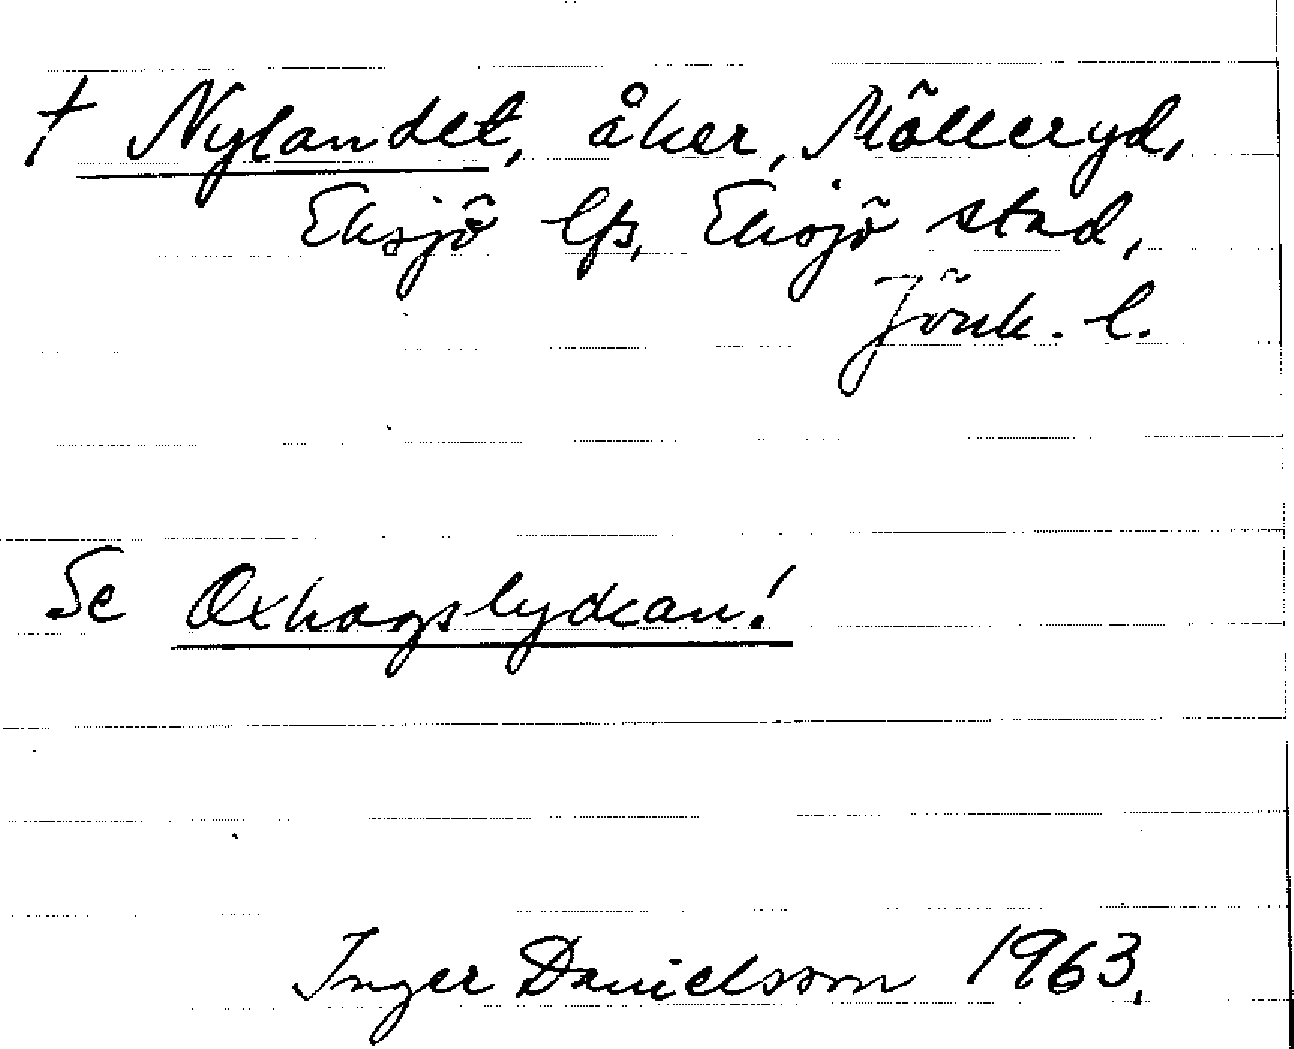 † Nylandet, åker, Mölleryd,
Eksjö lfs, Eksjö stad,
Jönk. l.
Se Oxhagslyckan!
Inger Danielsson 1963.